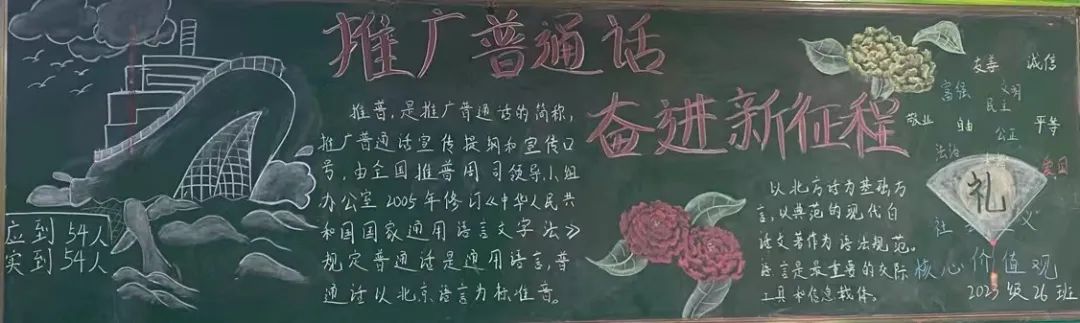 推广普通话
奋进新征程
推普,是推广普通话的简称,
推广普通话宣传提纲和宣传口
号,由全国推普周司领导小组
办公室2005年修订《中华人民共
和国国家通用语言文字法》
规定普通话是通用语言,普
通话以北京语言为标准音。
应到54人
实到54人
以北方话为基础方
言,以典范的现代白
话文著作为语法规范。
语言是最重要的交际
工具和信息载体。
友善 诚信
富强 文明
民主
敬业 自由 公正 平等
法治
爱国
礼
社 义
核心价值观
2023级26班